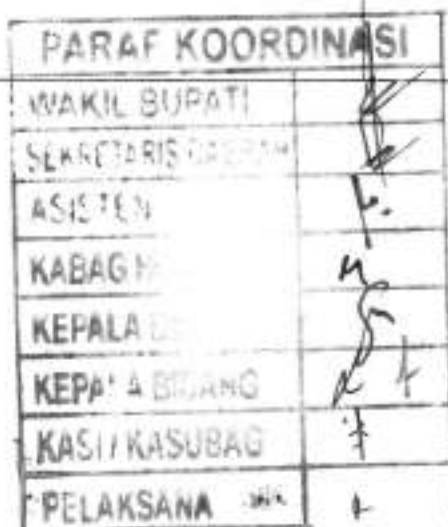 PARAF KOORDINASI
WAKIL BUPATI
SEKRETARIS DAERAH
ASISTEN
KABAG
KEPALA
KEPALA BIDANG
KASI / KASUBAG
PELAKSANA